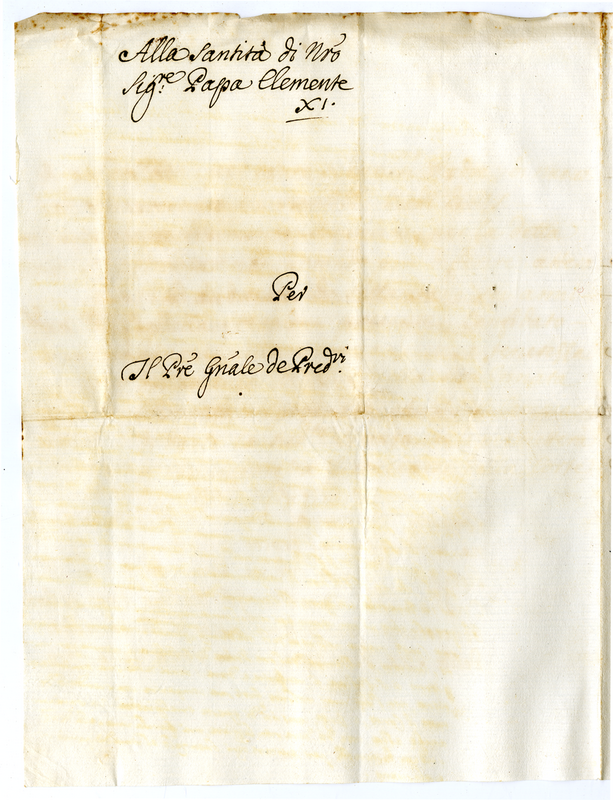 Alla Santità di Nrõ
Sigre. Papa Clemente
XI.
Per
Il Prẽ Gnãle de Predri.